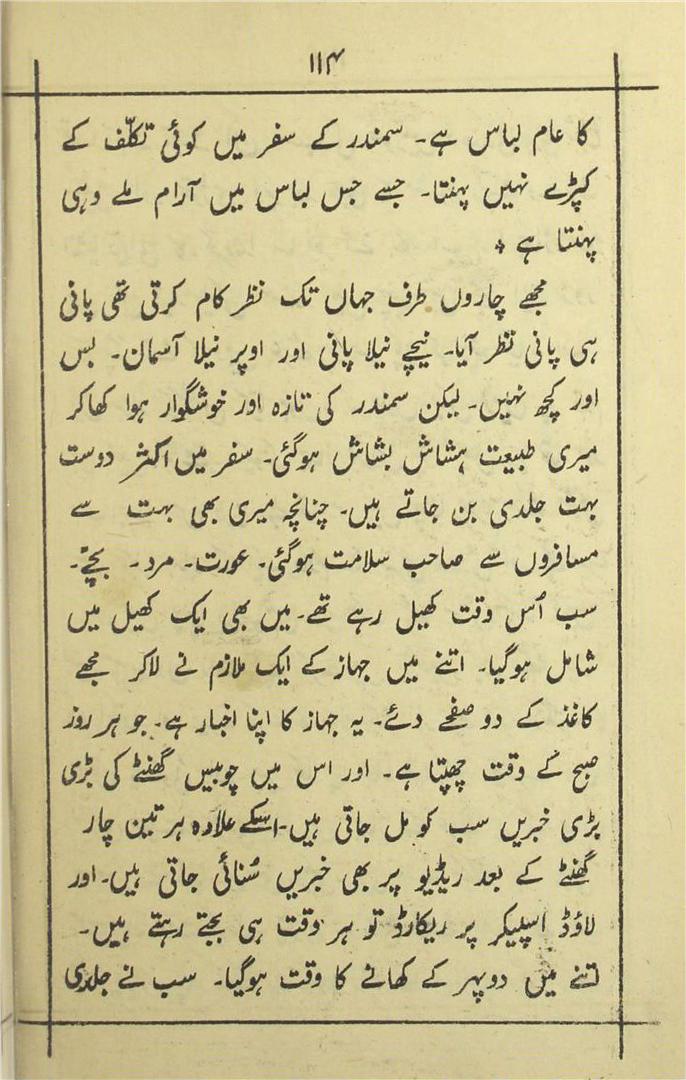 ۱۱۴
کا عام لباس ہے۔ سمندر کے سفر میں کوئی تکلّف کے
کپڑے نہیں پہنتا۔ جسے جس لباس میں آرام ملے وہی
پہنتا ہے ÷
مجھے چاروں طرف جہاں تک نظر کام کرتی تھی پانی
ہی پانی نظر آیا۔ نیچے نیلا پانی اور اوپر نیلا آسمان۔ بس
اور کچھ نہیں۔ لیکن سمندر کی تازہ اور خوشگوار ہوا کھاکر
میری طبیعت ہشاش بشاش ہوگئی۔ سفر میں اکثر دوست
بہت جلدی بن جاتے ہیں۔ چنانچہ میری بھی بہت سے
مسافروں سے صاحب سلامت ہوگئی۔ عورت۔ مرد۔ بچّے۔
سب اُس وقت کھیل رہے تھے۔ میں بھی ایک کھیل میں
شامل ہوگیا۔ اتنے میں جہاز کے ایک ملازم نے لاکر مجھے
کاغذ کے دو صفحے دئے۔ یہ جہاز کا اپنا اخبار ہے۔ جو ہر روز
صبح کے وقت چھپتا ہے۔ اور اس میں چوبیس گھنٹے کی بڑی
بڑی خبریں سب کو مل جاتی ہیں۔ اسکے علاوہ ہر تین چار
گھنٹے کے بعد ریڈیو پر بھی خبریں سُنائی جاتی ہیں۔ اور
لاؤڈ اسپیکر پر ریکارڈ تو ہر وقت ہی بجتے رہتے ہیں۔
اتنے میں دوپہر کے کھانے کا وقت ہوگیا۔ سب نے جلدی